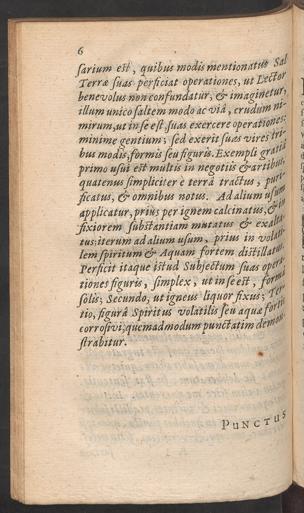 6
sarium est, quibus modis mentionatus Sal
Terræ suas perficiat operationes, ut Lector
benevolus non confundatur, & imaginetur,
illum unico saltem modo ac viâ, crudum ni-
mirum, ut in se est, suas exercere operationes;
minime gentium; sed exerit suas vires tri-
bus modis, formis seu figuris. Exempli gratiâ
primo usui est multis in negotiis & artibus,
quatenus simpliciter è terrâ tractus, puri-
ficatus, & omnibus notus. Ad alium usum
applicatur, priùs per ignem calcinatus, & in
fixiorem substantiam mutatus & exalta-
tus: iterum ad alium usum, prius in volati-
lem spiritum & Aquam fortem distillatus.
Perficit itaque istud Subjectum suas opera-
tiones figuris, simplex, ut in se est, formâ
solis; Secundo, ut igneus liquor fixus; Ter-
tio, figurâ Spiritus volatilis seu aquæ fortis
corrosivi; quemadmodum punctatim demon-
strabitur.
PUNCTUS